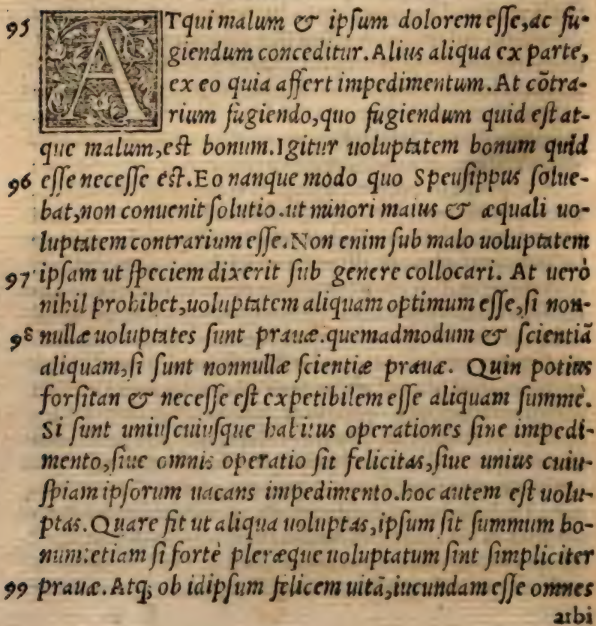 95 ATqui malum & ipſum dolorem eſſe, ac fu-
giendum conceditur. Alius aliqua ex parte,
ex eo quia affert impedimentum. At cōtra-
rium fugiendo, quo fugiendum quid eſt at-
que malum, eſt bonum. Igitur uoluptatem bonum quid
96 eſſe neceſſe eſt. Eo nanque modo quo Speuſippus ſolue-
bat, non conuenit ſolutio. ut minori maius & æquali uo-
luptatem contrarium eſſe. Non enim ſub malo uoluptatem
97 ipſam ut ſpeciem dixerit ſub genere collocari. At uerò
nihil prohibet, uoluptatem aliquam optimum eſſe, ſi non-
98 nullæ uoluptates ſunt prauæ. quemadmodum & ſcientiā
aliquam, ſi ſunt nonnullæ ſcientiæ prauæ. Quin potius
forſitan & neceſſe eſt expetibilem eſſe aliquam ſummè.
Si ſunt uniuſcuiuſque habitus operationes ſine impedi-
mento, ſiue omnis operatio ſit felicitas, ſiue unius cuiu-
ſpiam ipſorum uacans impedimento. hoc autem eſt uolu-
ptas. Quare fit ut aliqua uoluptas, ipſum ſit ſummum bo-
num: etiam ſi fortè pleræque uoluptatum ſint ſimpliciter
99 prauæ. Atq; ob idipſum felicem uitā, iucundam eſſe omnes
arbi